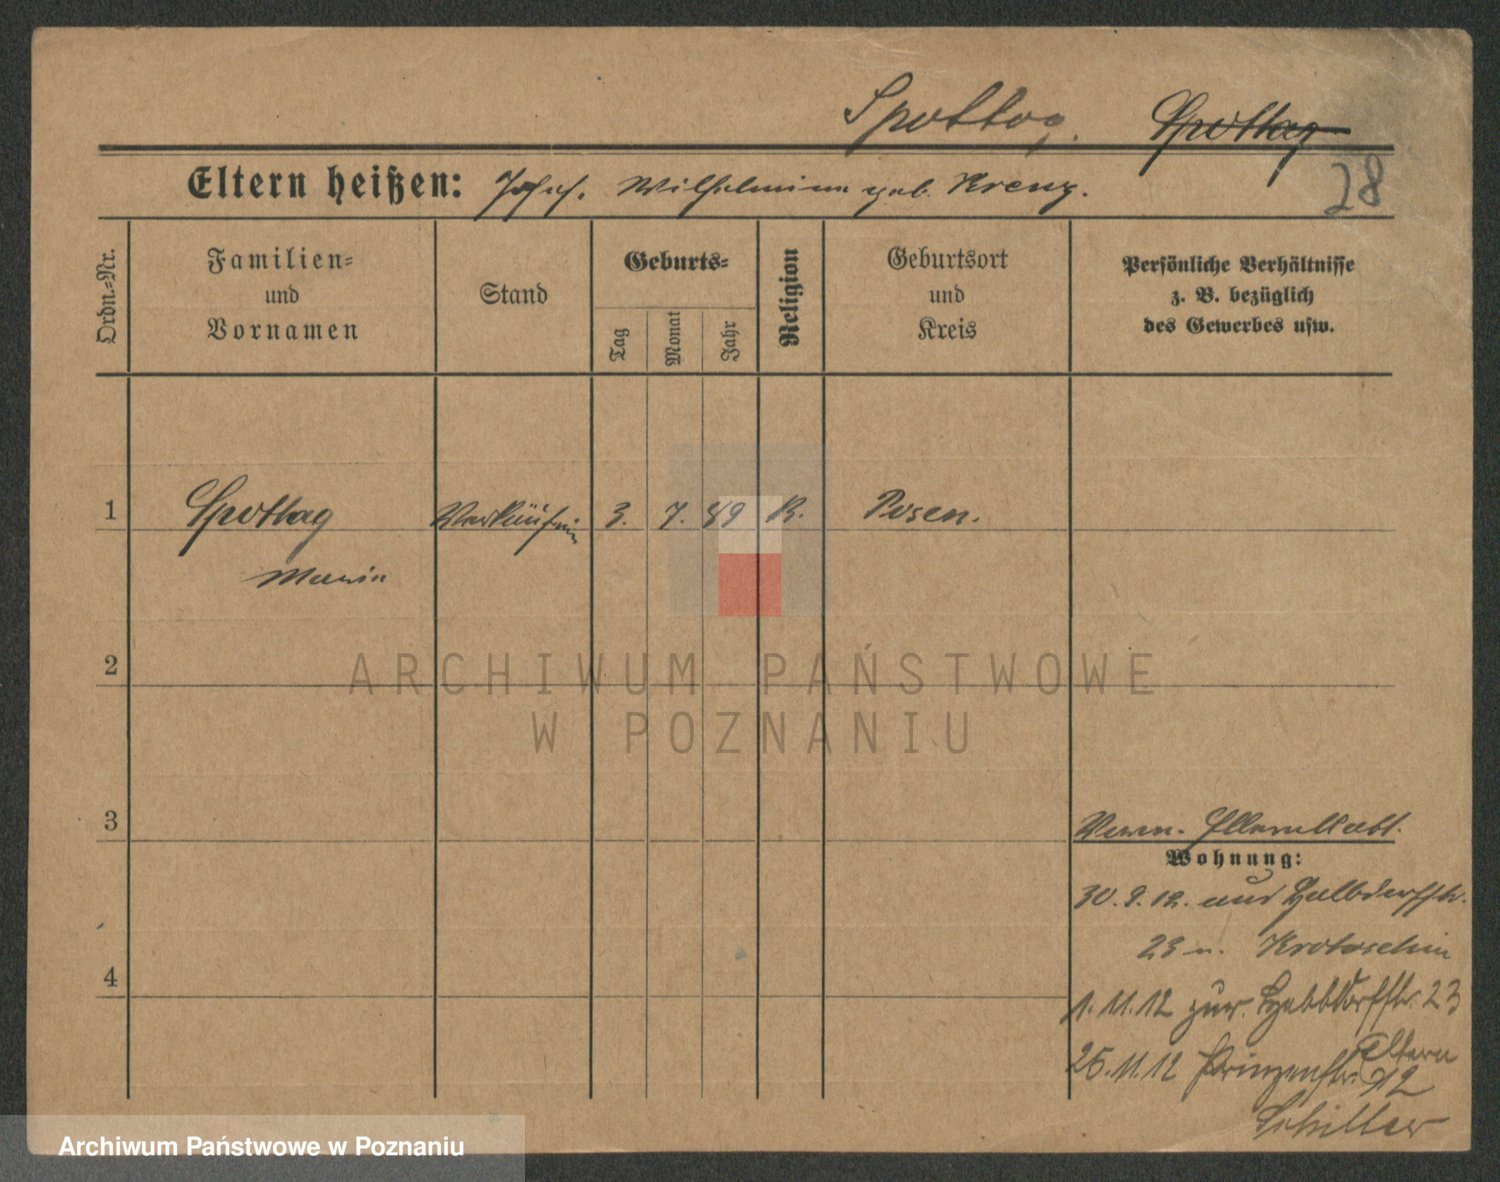 Spottag. Spottag
Eltern heißen: Josef. Wilhelmine geb. Kreuz.
28
Ordn.=Nr.
Familien=
und
Vornamen
Stand
Geburts=
Tag
Monat
Jahr
Religion
Geburtsort
und
Kreis
Persönliche Verhältnisse
z. B. bezüglich
des Gewerbes usw.
1 Spottag Verkäuferin 3. 7. 89 R. Posen.
Maria
2
ARCHIWUM PAŃSTWOWE
W POZNANIU
3
Wohnung:
30. 9. 12. aus Halbdorfstr.
23 n. Krotoschin
4
1. 11. 12 zur. Halbdorfstr. 23
Eltern
25. 11. 12 Prinzenstr. 12
Schiller
Archiwum Państwowe w Poznaniu